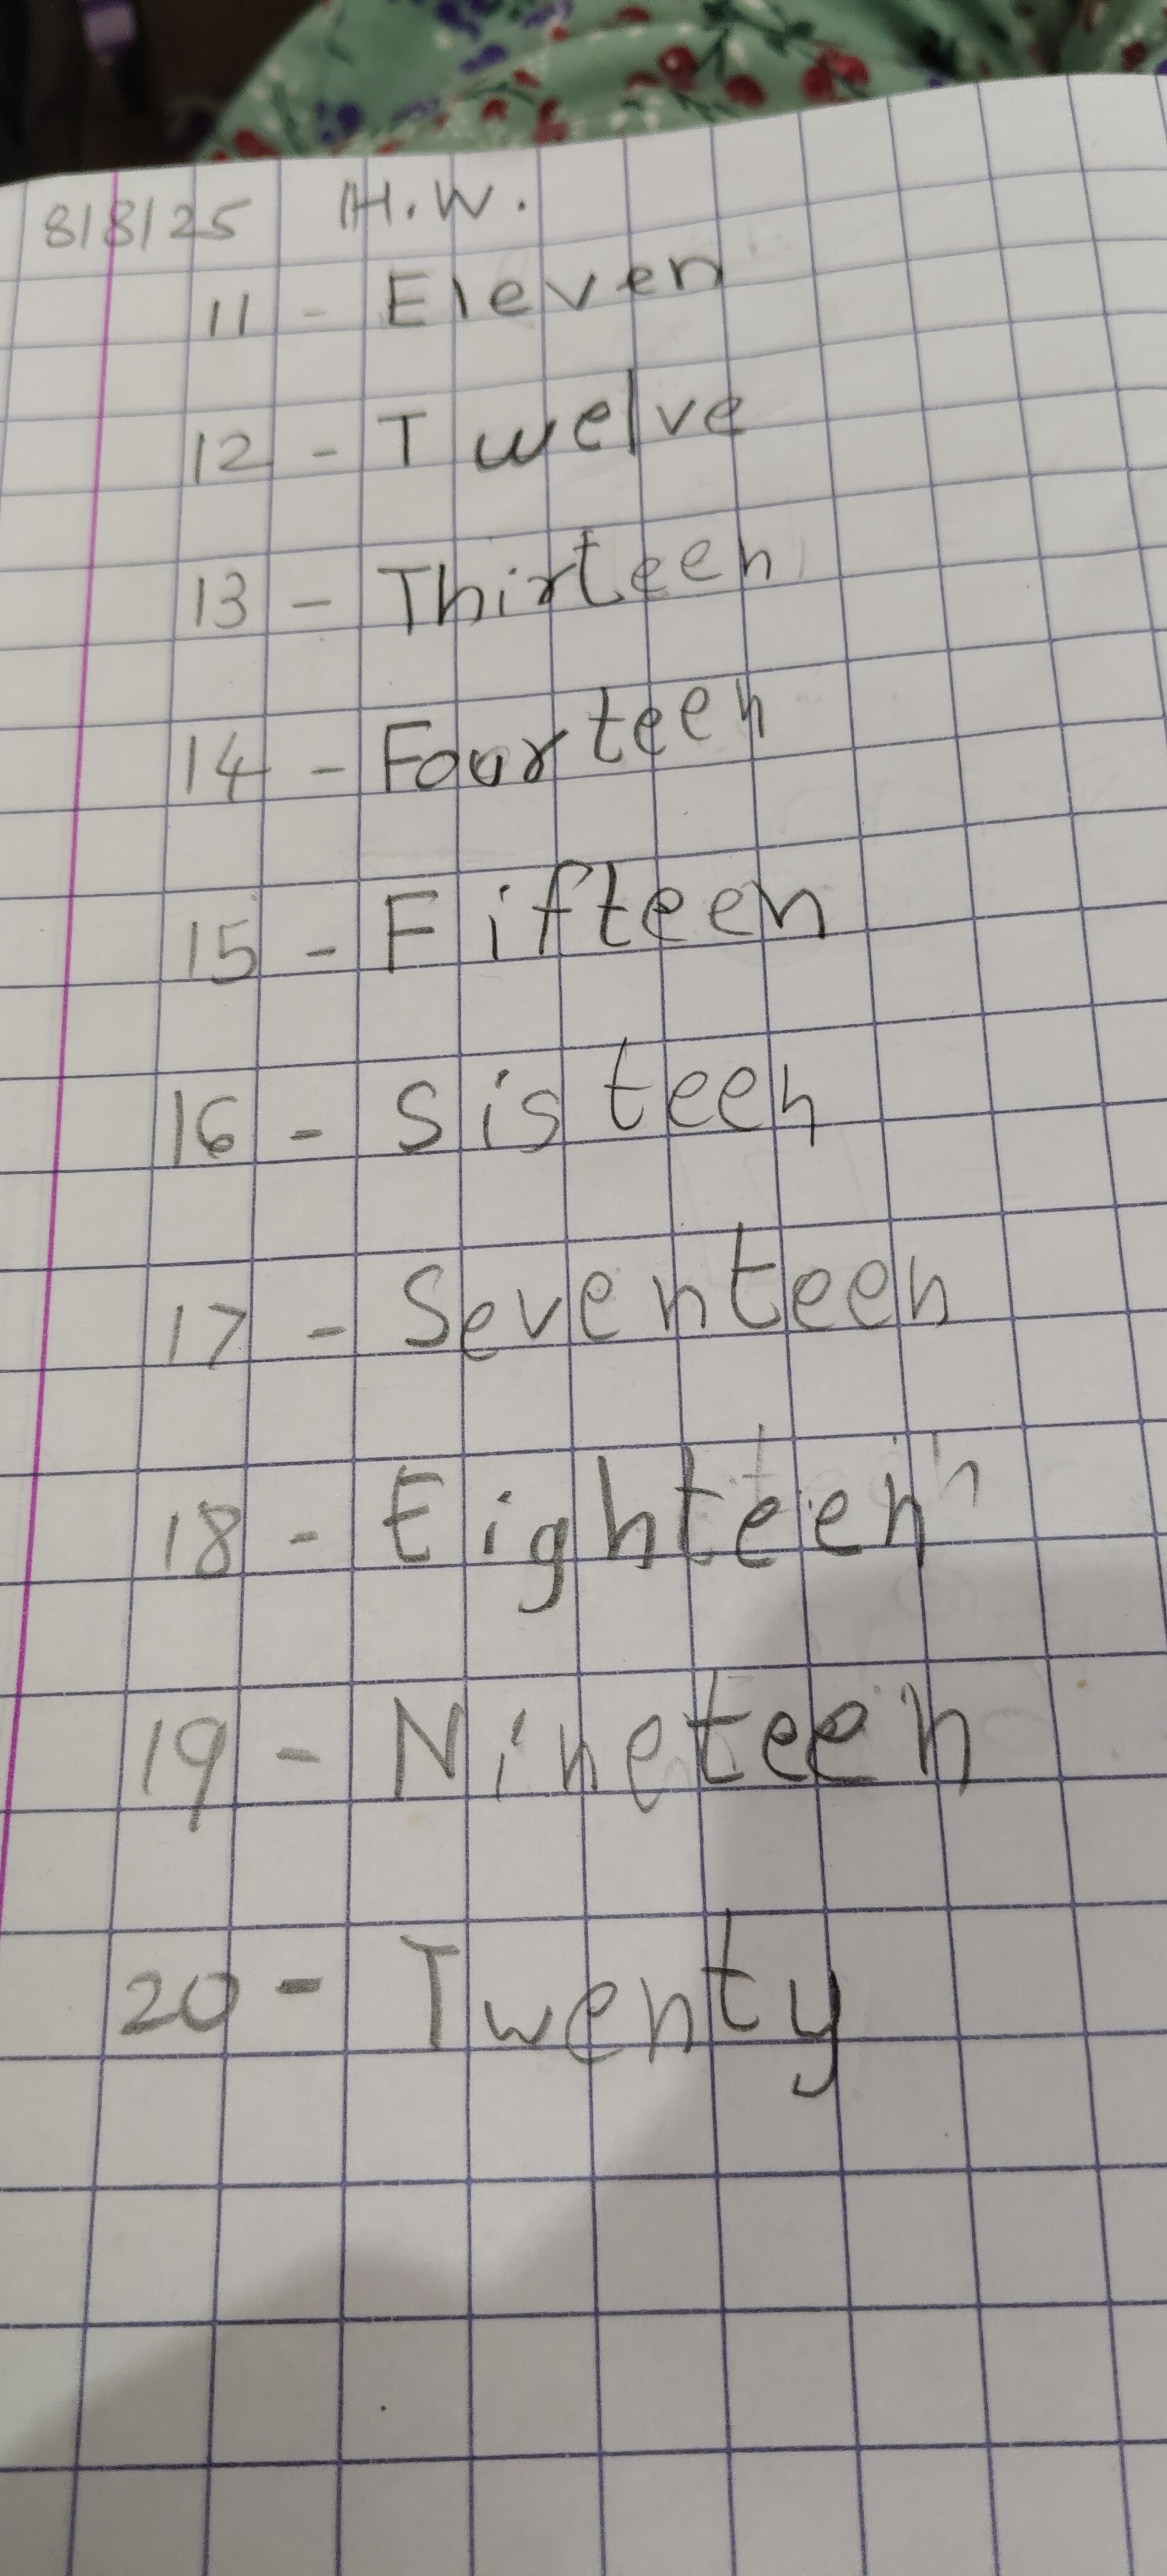 8/8/25 H.W.
11 - Eleven
12 - Twelve
13 - Thirteen
14 - Fourteen
15 - Fifteen
16 - Sisteen
17 - Seventeen
18 - Eighteen
19 - Nineteen
20 - Twenty